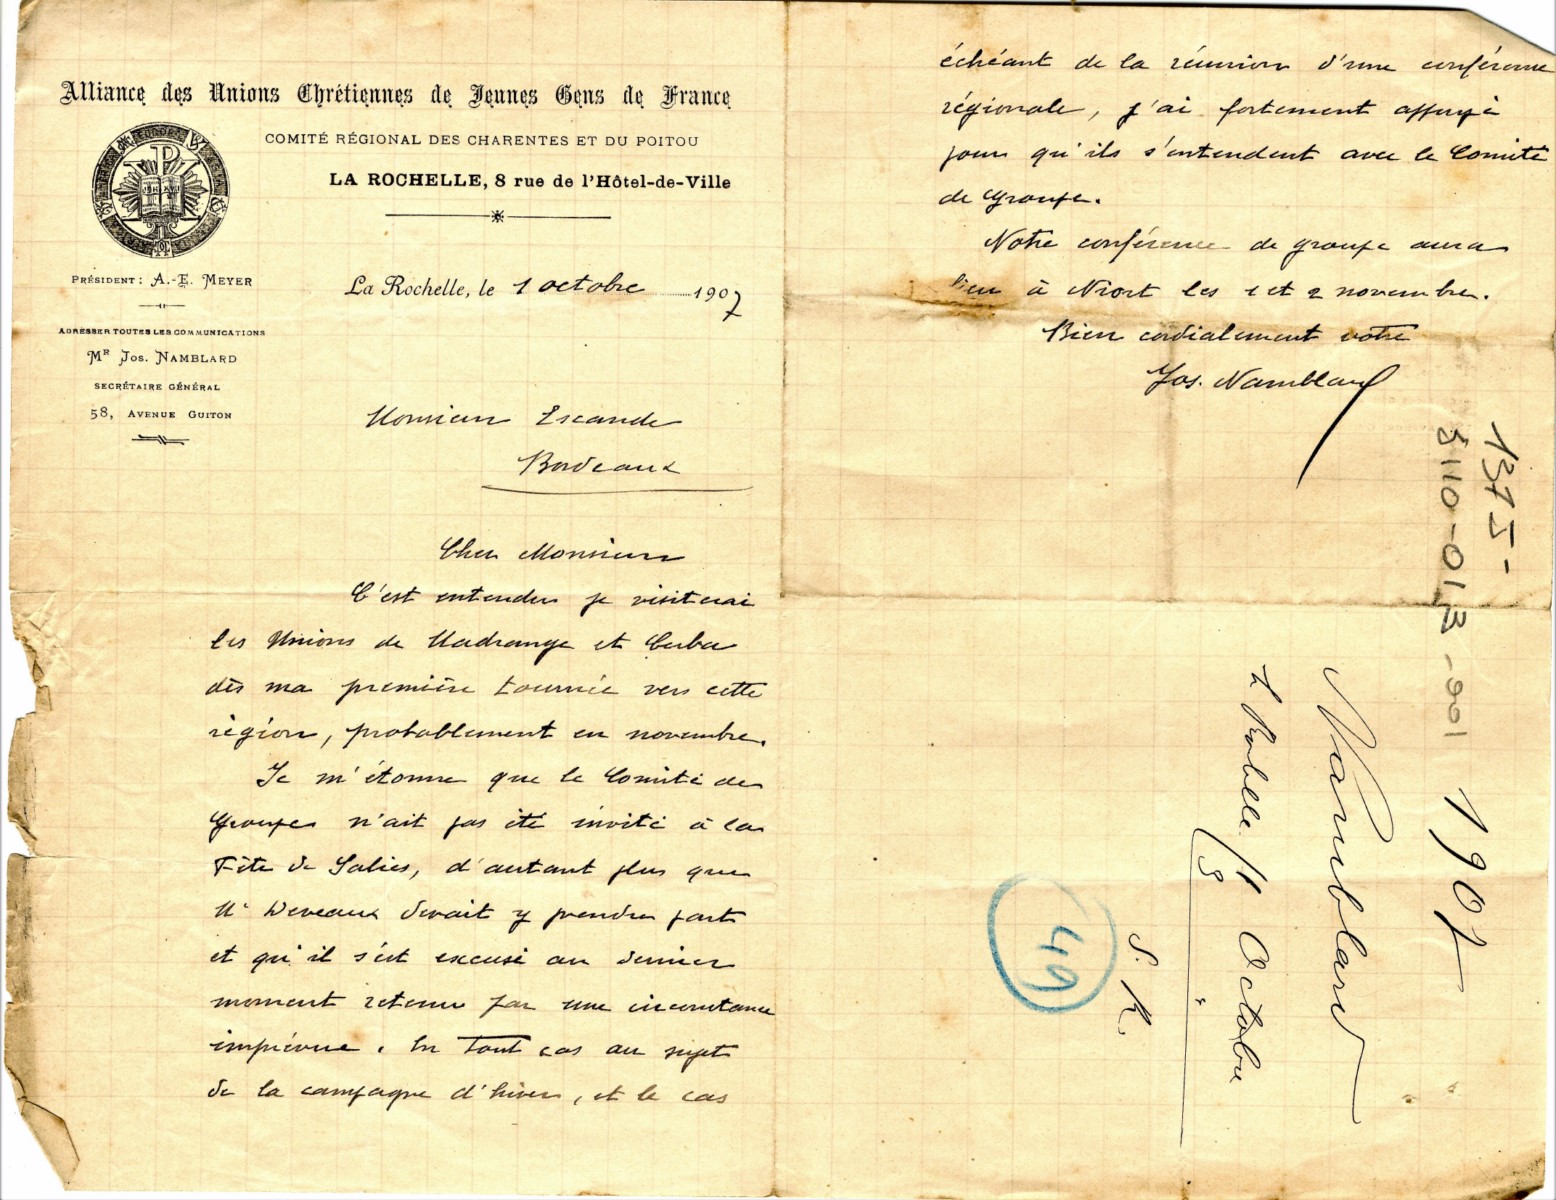 Alliance des Unions Chrétiennes de Jeunes Gens de France
COMITÉ RÉGIONAL DES CHARENTES ET DU POITOU
LA ROCHELLE, 8 rue de l'Hôtel-de-Ville
PRÉSIDENT : A.-E. MEYER
ADRESSER TOUTES LES COMMUNICATIONS
MR JOS. NAMBLARD
SECRÉTAIRE GÉNÉRAL
58, AVENUE GUITON
La Rochelle, le 1 octobre 1907
Monsieur Escande
Bordeaux
Cher Monsieur
C'est entendu je visiterai
les Unions de Madrange et
dès ma première tournée vers cette
région, probablement en novembre.
Je m'étonne que le Comité de
Groupe n'ait pas été invité à la
Fête de Salies, d'autant plus que
Mr Deveaux devait y prendre part
et qu'il s'est excusé au dernier
moment retenu par une circonstance
imprévue. En tout cas au sujet
de la campagne d'hiver, et le cas
échéant de la réunion d'une conférence
régionale, j'ai fortement appuyé
pour qu'ils s'entendent avec le Comité
de groupe.
Notre conférence de groupe aura
lieu à Niort les 1 et 2 novembre.
Bien cordialement votre
Jos. Namblard
1375-
5110-01B-001
1907
Namblard
Octobre
S. R.
49